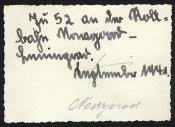 Ju 52 an der Roll-
bahn Nowgorod-
Leningrad.
September 194
Nowgorod